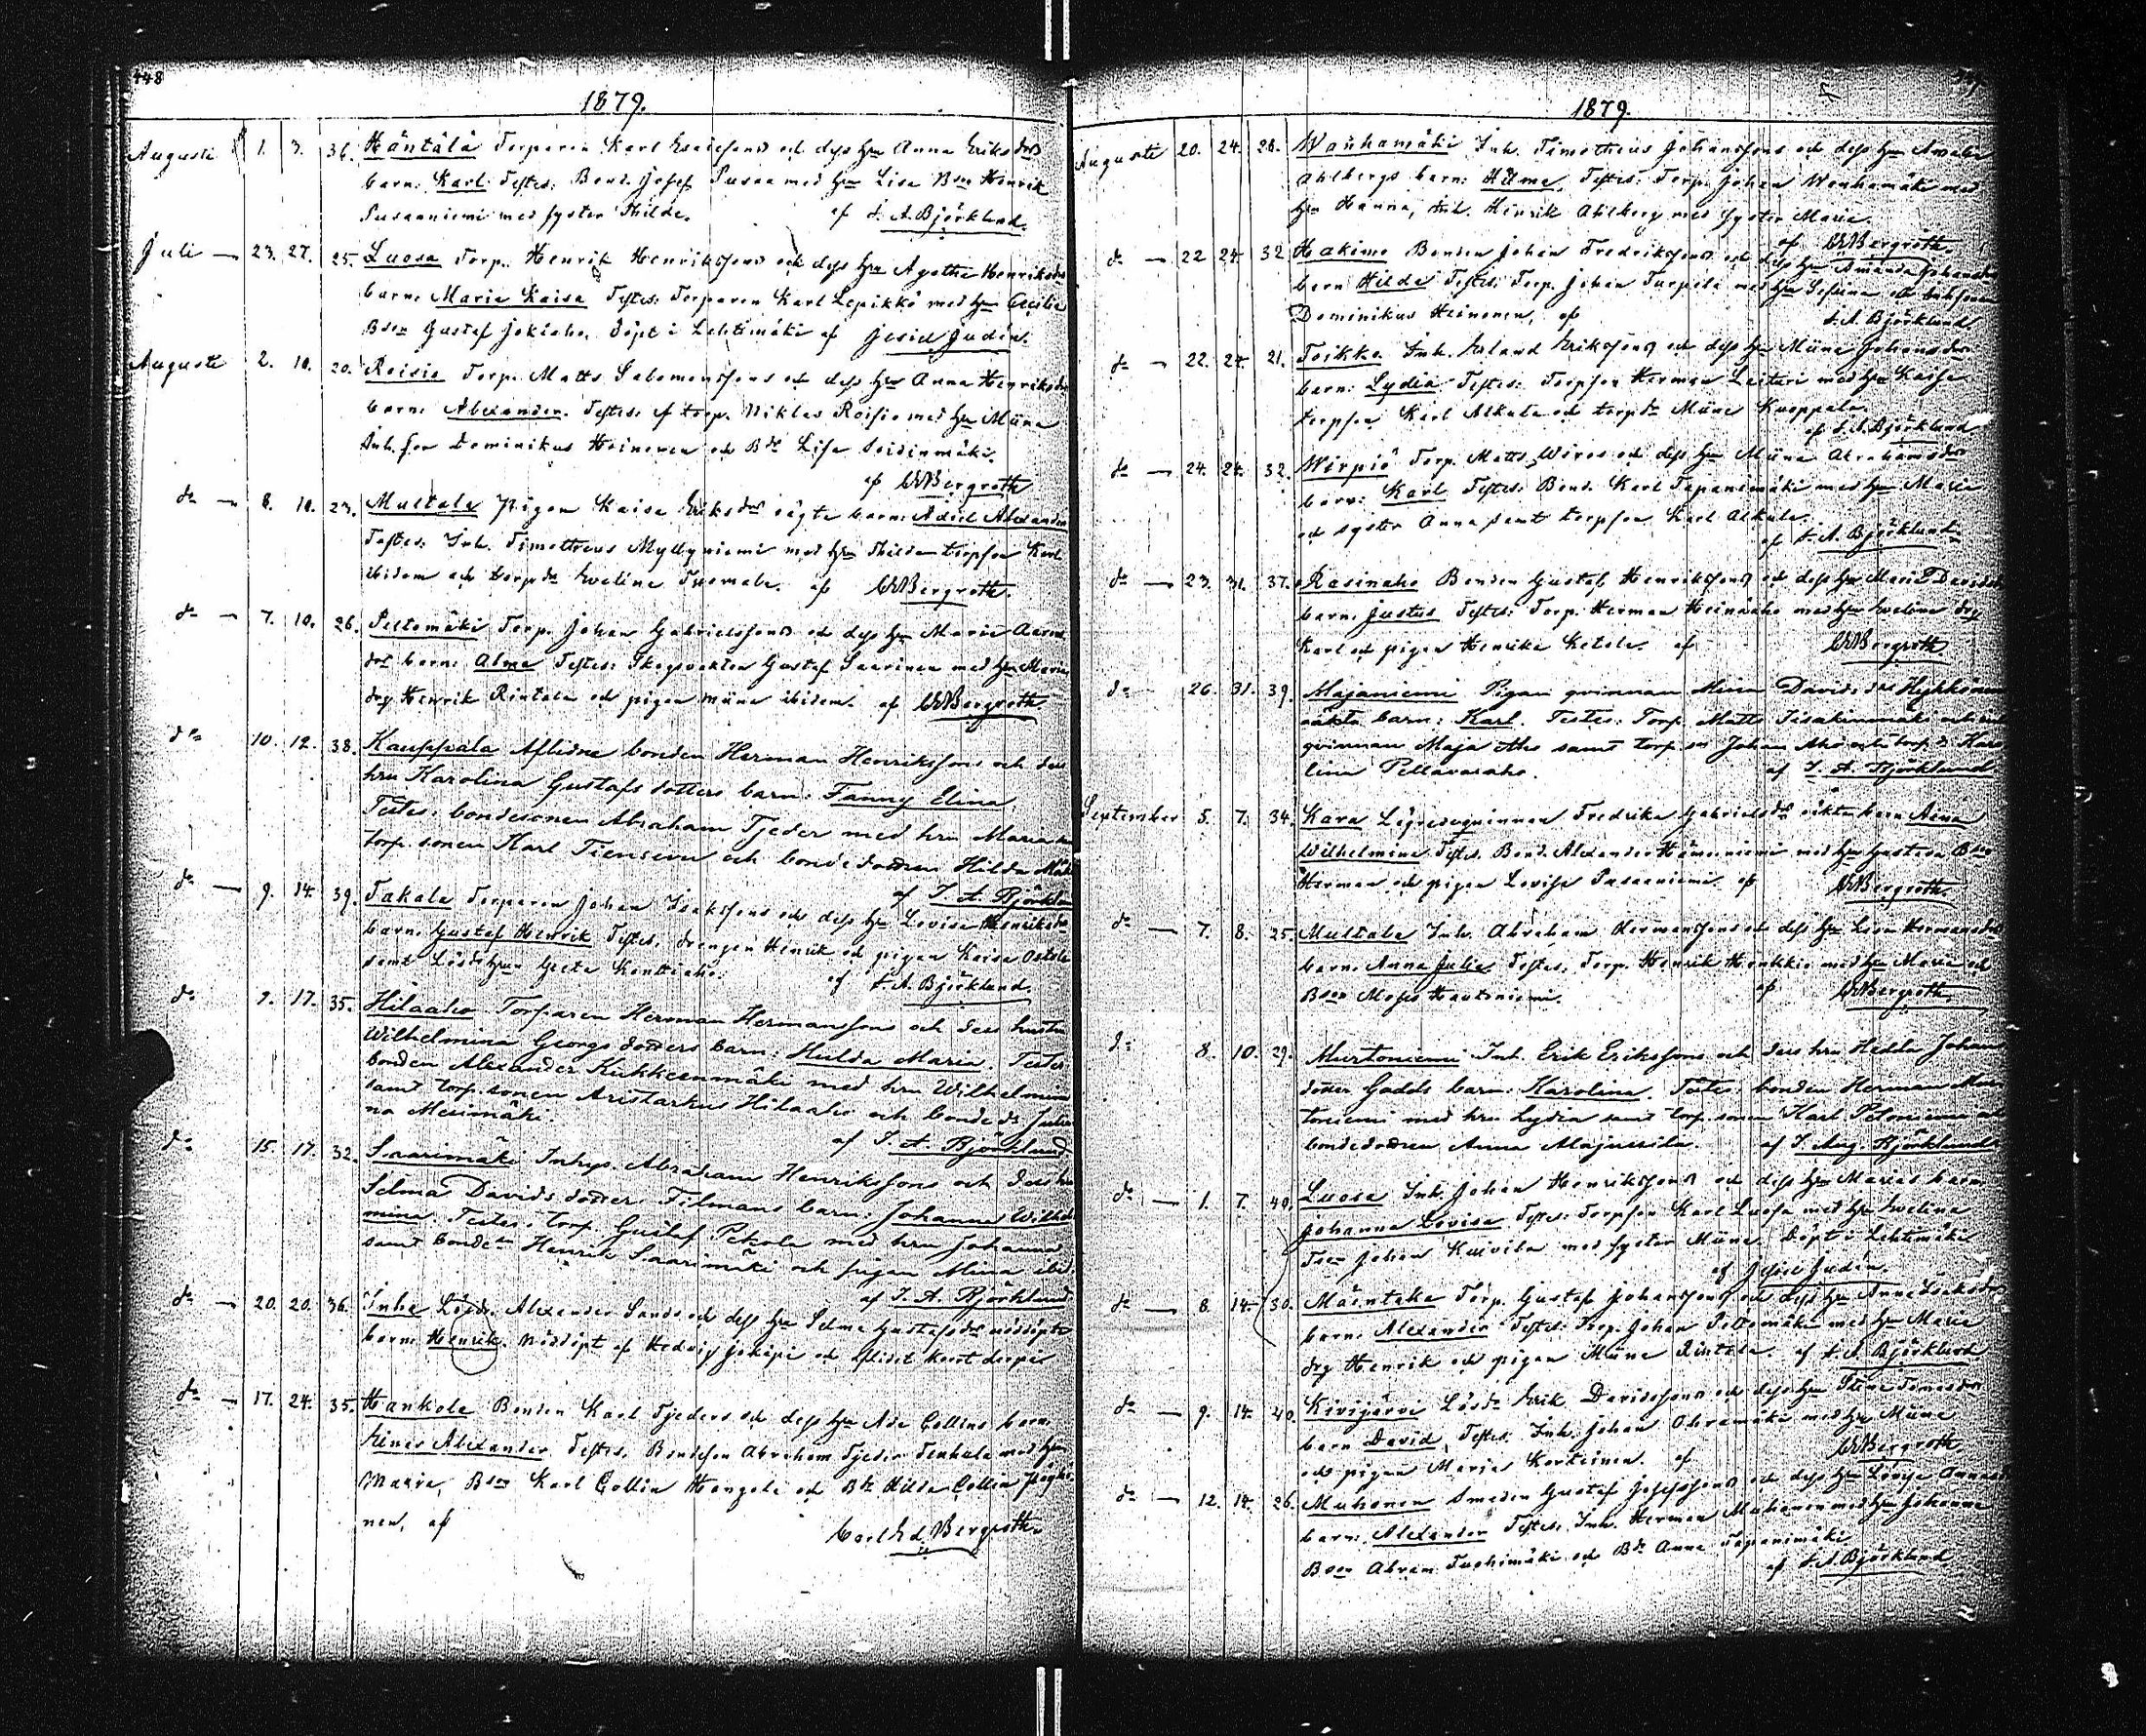 448
1879.
Augusti 1. 3. 36. Häntälä Torparen Karl Esaiessons och dess hu Anna Eriksdrs
barn: Karl. Testes: Bond. Josef Pusaa med hu Lisa Bson Henrik
Pusaaniemi med syster Thilda. af I. A. Björklund.
Juli — 23. 27. 25. Luosa Torp. Henrik Henrikssons och dess hu Agatha Henriksdrs
barn: Maria Kaisa Testes: Torparen Karl Lepikkö med hu Cecilia
Bson Gustaf Jokiaho. Döpt i Lehtimäki af Judén.
Augusti 2. 10. 20. Roisio Torp. Matts Salomonssons och dess hu Anna Henriksdrs
barn: Alexander. Testes: torp. Niklas Roisio med hu Miina
Inh. son Dominikus Heinonen och Bdr Lisa
af CEBergroth
do — 8. 10. 23. Multala Pigan Kaisa Eriksdrs oägta barn: Axel Alexander
Testes: Inh. Timotheus Myllyniemi med hu Thilda torpson Karl
ibidem och torpdr Evelina Tuomala. af CEBergroth.
do — 7. 10. 26. Peltomäki Torp. Johan Gabrielssons och dess hu Maria
drs barn: Alma Testes: Skogsvakten Gustaf Saarinen med hu Maria
drg Henrik Rintala och pigan Miina ibidem. af CEBergroth.
do 10. 12. 38. Kauppala Aflidne bonden Herman Henrikssons och dess
hru Karolina Gustafsdotters barn: Fanny Elina
Testes: bondesonen Abraham Tjeder med hru Maria
torp. sonen Karl Tiensuu och bondedottren Hilda
af I. A. Björklund
do — 9. 14. 39. Takala Torparen Johan Isakssons och dess hu Lovisa Henriksdrs
barn: Gustaf Henrik Testes: drengen Henrik och pigan Kaisa
samt Greta Konttiaho. af I. A. Björklund.
do 9. 17. 35. Hilaaho Torparen Herman Hermanssons och dess hustru
Wilhelmina Georgs dotters barn: Hulda Maria. Testes:
bonden Alexander Kukkeenmäki med hru Wilhelmina
samt torp. sonen Aristarkus Hilaaho och bonde dr Julia
na Mesimäki.
af I. A. Björklund
do 15. 17. 32. Saarimäki Inhys. Abraham Henrikssons och dess hru
Selma Davids dotter Tilmans barn: Johanna Wilhel
mina. Testes: torp. Gustaf Petzola med hru Johanna
samt bonde sn Henrik Saarimäki och pigan Mina ibid.
af I. A. Björklund
do — 20. 20. 36. Inha Alexander Sands och dess hu Selma Gustafsdrs nöddöpte
barn: Henrik. Nöddöpt af Hedvig Jokipi och aflidet kort derpå
do — 17. 24. 35. Hankola Bonden Karl Tjeders och dess hu Ada Collins barn:
Einar Alexander Testes: Bondeson Abraham Tjeder med hu
Maria, Bson Karl Collin och Bdr Hilda Collin
nen, af Carl Ed. Bergroth.
1879.
Augusti 20. 24. 28. Wanhamäki Inh. Timotheus Johanssons och dess hu Amalia
Ahlbergs barn: Hilma. Testes: Torp. Johan Wanhamäki med
hu Hanna, Inh. Henrik Ahlberg med syster Maria.
af CEBergroth
do — 22 24. 32 Hakimo Bonden Johan Fredrikssons och dess hu Amanda Johansdrs
barn Hilda Testes: Torp. Johan Turpela med hu Sefina
Dominikus Heinonen, af I. A. Björklund
do — 22. 24. 21. Toikka Inh. Erland Erikssons och dess hu Miina Johansdrs
barn: Lydia Testes: Torpson Herman Laituri med hu Kaisa
torpson Karl Alkula och torpdr Miina Kuoppala.
af I. A. Björklund
do — 24. 24. 32. Wirpiö Torp. Matts Wires och dess hu Miina Abrahamsdrs
barn: Karl Testes: Bond. Karl Tapanimäki med hu Maria
och syster Anna samt torpson Karl Alkula.
af I. A. Björklund
do — 23. 31. 37. Rasinaho Bonden Gustaf Henrikssons och dess hu Maria Davidsdrs
barn: Justus Testes: Torp. Herman Heinäaho med hu Evelina drg
Karl och pigan Henrika Ketola. af CEBergroth
do 26. 31. 39. Majaniemi Pigan qvinnan Miina Davids drs
oäkta barn: Karl. Testes: Torp. Matts
qvinnan Maja Aho samt torp. sn Johan Aho och torp. dr Karo
lina Pellavaraho. af I. A. Björklund
September 5. 7. 34. Kara qvinnan Fredrika Gabrielsdrs oäkta barn Aina
Wilhelmina. Testes: Bond. Alexander Hämeniemi med hu Gustava Bson
Herman och pigan Lovisa Pusaaniemi. af CEBergroth
do — 7. 8. 25. Multala Inh. Abraham Hermanssons och dess hu Lisa Hermansdrs
barn: Anna Julia. Testes: Torp. Henrik med hu Maria och
Bson Moses Hautaniemi. af CEBergroth
do 8. 10. 29. Murtoniemi Inh. Erik Erikssons och dess hru Hedda Johans
dotter Gadds barn: Karolina. Testes: bonden Herman Mur
toniemi med hru Lydia samt torp. sonen Karl Petoniemi och
bondedottren Anna Majussila. af I. Aug. Björklund
do — 1. 7. 40. Luosa Inh. Johan Henrikssons och dess hu Marias barn
Johanna Lovisa Testes: Torpson Karl Luosa med hu Evelina
Tson Johan Kuivila med syster Miina. Döpt i Lehtimäki
af Judén.
do — 8. 14. 30. Mäentaka Torp. Gustaf Johanssons och dess hu Anna Isaksdrs
barn: Alexander Testes: Torp. Johan Peltomäki med hu Maria
drg Henrik och pigan Miina Rintala. af I. A. Björklund
do — 9. 14. 40. Kivijärvi Erik Davidssons och dess hu Stina Tomasdrs
barn David Testes: Inh. Johan Ahramäki med hu Miina
och pigan Maria Korteinen. af CEBergroth
do — 12. 14. 26. Muhonen Smeden Gustaf Josefssons och dess hu Lovisa
barn: Alexander Testes: Inh. Herman Muhonen med hu Johanna
Bson Abram Tuohimäki och Bdr Anna Tapanimäki
af I. A. Björklund